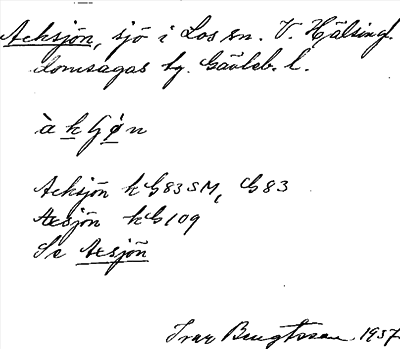 Acksjön, sjö i Los sn. V. Hälsingl.
domsagas tg. Gävleb. l.
à k g ö n
Acksjön kG83SM, G83
Axsjön kG109
Se Axsjön
Ivar Bengtsson 1937